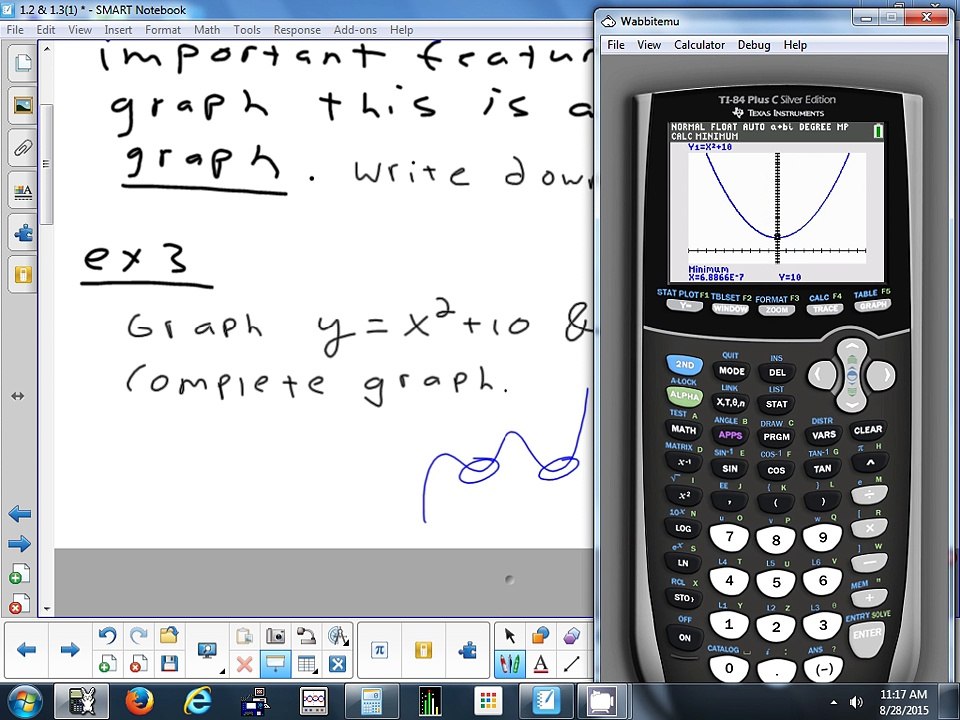 1.2 & 1.3(1) * - SMART Notebook
File Edit View Insert Format Math Tools Response Add-ons Help
important featur
graph this is a
graph. Write down
ex 3
Graph y = x²+10 &
Complete graph.
Wabbitemu
File View Calculator Debug Help
TI-84 Plus C Silver Edition
TEXAS INSTRUMENTS
NORMAL FLOAT AUTO a+bi DEGREE MP
CALC MINIMUM
Y1=X²+10
Minimum
X=6.8866E-7 Y=10
STAT PLOT F1 TBLSET F2 FORMAT F3 CALC F4 TABLE F5
Y= WINDOW ZOOM TRACE GRAPH
QUIT INS
2ND MODE DEL
A-LOCK LINK LIST
ALPHA X,T,θ,n STAT
TEST A ANGLE B DRAW C DISTR
MATH APPS PRGM VARS CLEAR
MATRIX D SIN⁻¹ E COS⁻¹ F TAN⁻¹ G π H
x⁻¹ SIN COS TAN ^
√ I EE J { K } L e M
x² , ( ) ÷
10ˣ N u O v P w Q [ R
LOG 7 8 9 ×
eˣ S L4 T L5 U L6 V ] W
LN 4 5 6 −
RCL X L1 Y L2 Z L3 θ MEM "
STO› 1 2 3 +
OFF CATALOG i : ANS ? ENTRY SOLVE
ON 0 . (−) ENTER
11:17 AM
8/28/2015